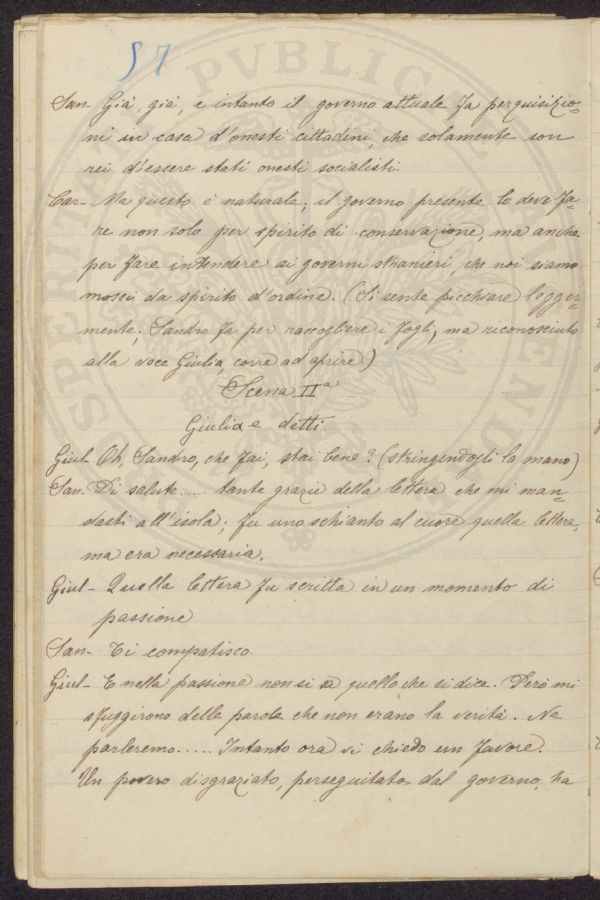 57
San- Già, già, e intanto il governo attuale fa perquisizio-
ni in casa d'onesti cittadini, che solamente son
rei d'essere stati onesti socialisti.
Car- Ma questo è naturale; il governo presente lo deve fa-
re non solo per spirito di conservazione, ma anche
per fare intendere ai governi stranieri, che noi siamo
mossi da spirito d'ordine. (Si sente picchiare legger-
mente; Sandro fa per raccogliere i fogli, ma riconosciuto
alla voce Giulia, corre ad aprire.)
Scena IIª
Giulia e detti.
Giul- Oh, Sandro, che fai, stai bene? (stringendogli la mano)
San- Di salute.... tante grazie della lettera che mi man-
dasti all'isola; fu uno schianto al cuore quella lettera,
ma era necessaria.
Giul- Quella lettera fu scritta in un momento di
passione
San- Ti compatisco.
Giul- E nella passione non si sa quello che si dice. Però mi
sfuggirono delle parole che non erano la verità. Ne
parleremo..... Intanto ora vi chiedo un favore.
Un povero disgraziato, perseguitato dal governo, ha